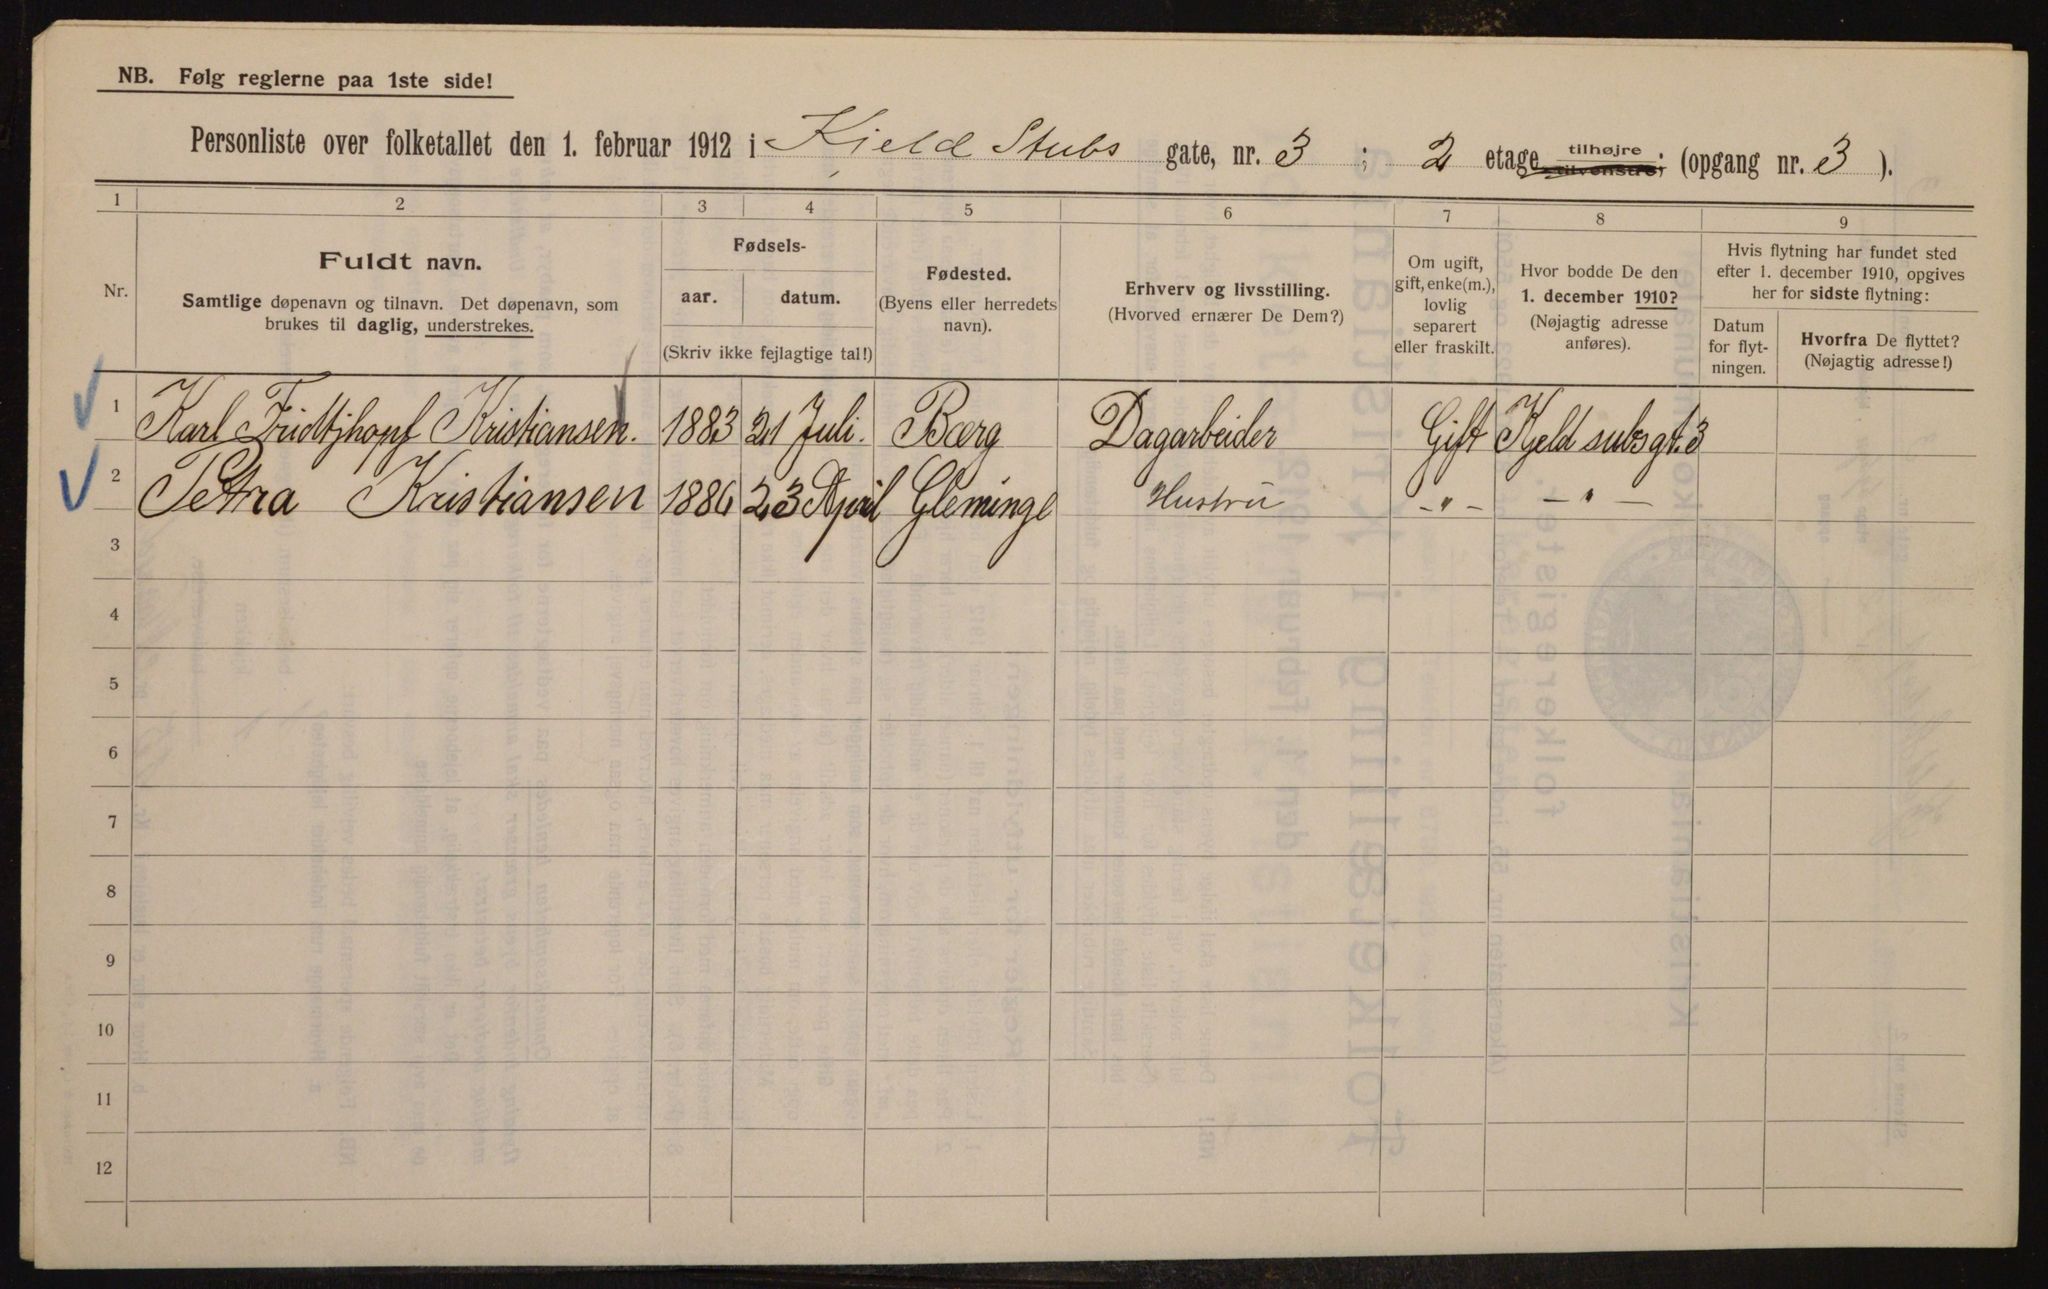 NB. Følg reglerne paa 1ste side!
Personliste over folketallet den 1. februar 1912 i Kjeld Stubs gate, nr. 3 ; 2 etage tilhøjre tilvenstre; (opgang nr. 3 ).
1 2 3 4 5 6 7 8 9
Nr.
Fuldt navn.
Samtlige døpenavn og tilnavn. Det døpenavn, som
brukes til daglig, understrekes.
Fødsels-
aar. datum.
(Skriv ikke fejlagtige tal!)
Fødested.
(Byens eller herredets
navn).
Erhverv og livsstilling.
(Hvorved ernærer De Dem?)
Om ugift,
gift, enke(m.),
lovlig
separert
eller fraskilt.
Hvor bodde De den
1. december 1910?
(Nøjagtig adresse
anføres).
Hvis flytning har fundet sted
efter 1. december 1910, opgives
her for sidste flytning:
Datum
for flyt-
ningen.
Hvorfra De flyttet?
(Nøjagtig adresse!)
1 Karl Fridtjhopf Kristiansen. 1883 21 Juli. Bærg Dagarbeider Gift Kjeld subsgt. 3
2 Petra Kristiansen 1886 23 April Gleminge Hustru -"- -"-
3
4
5
6
7
8
9
10
11
12